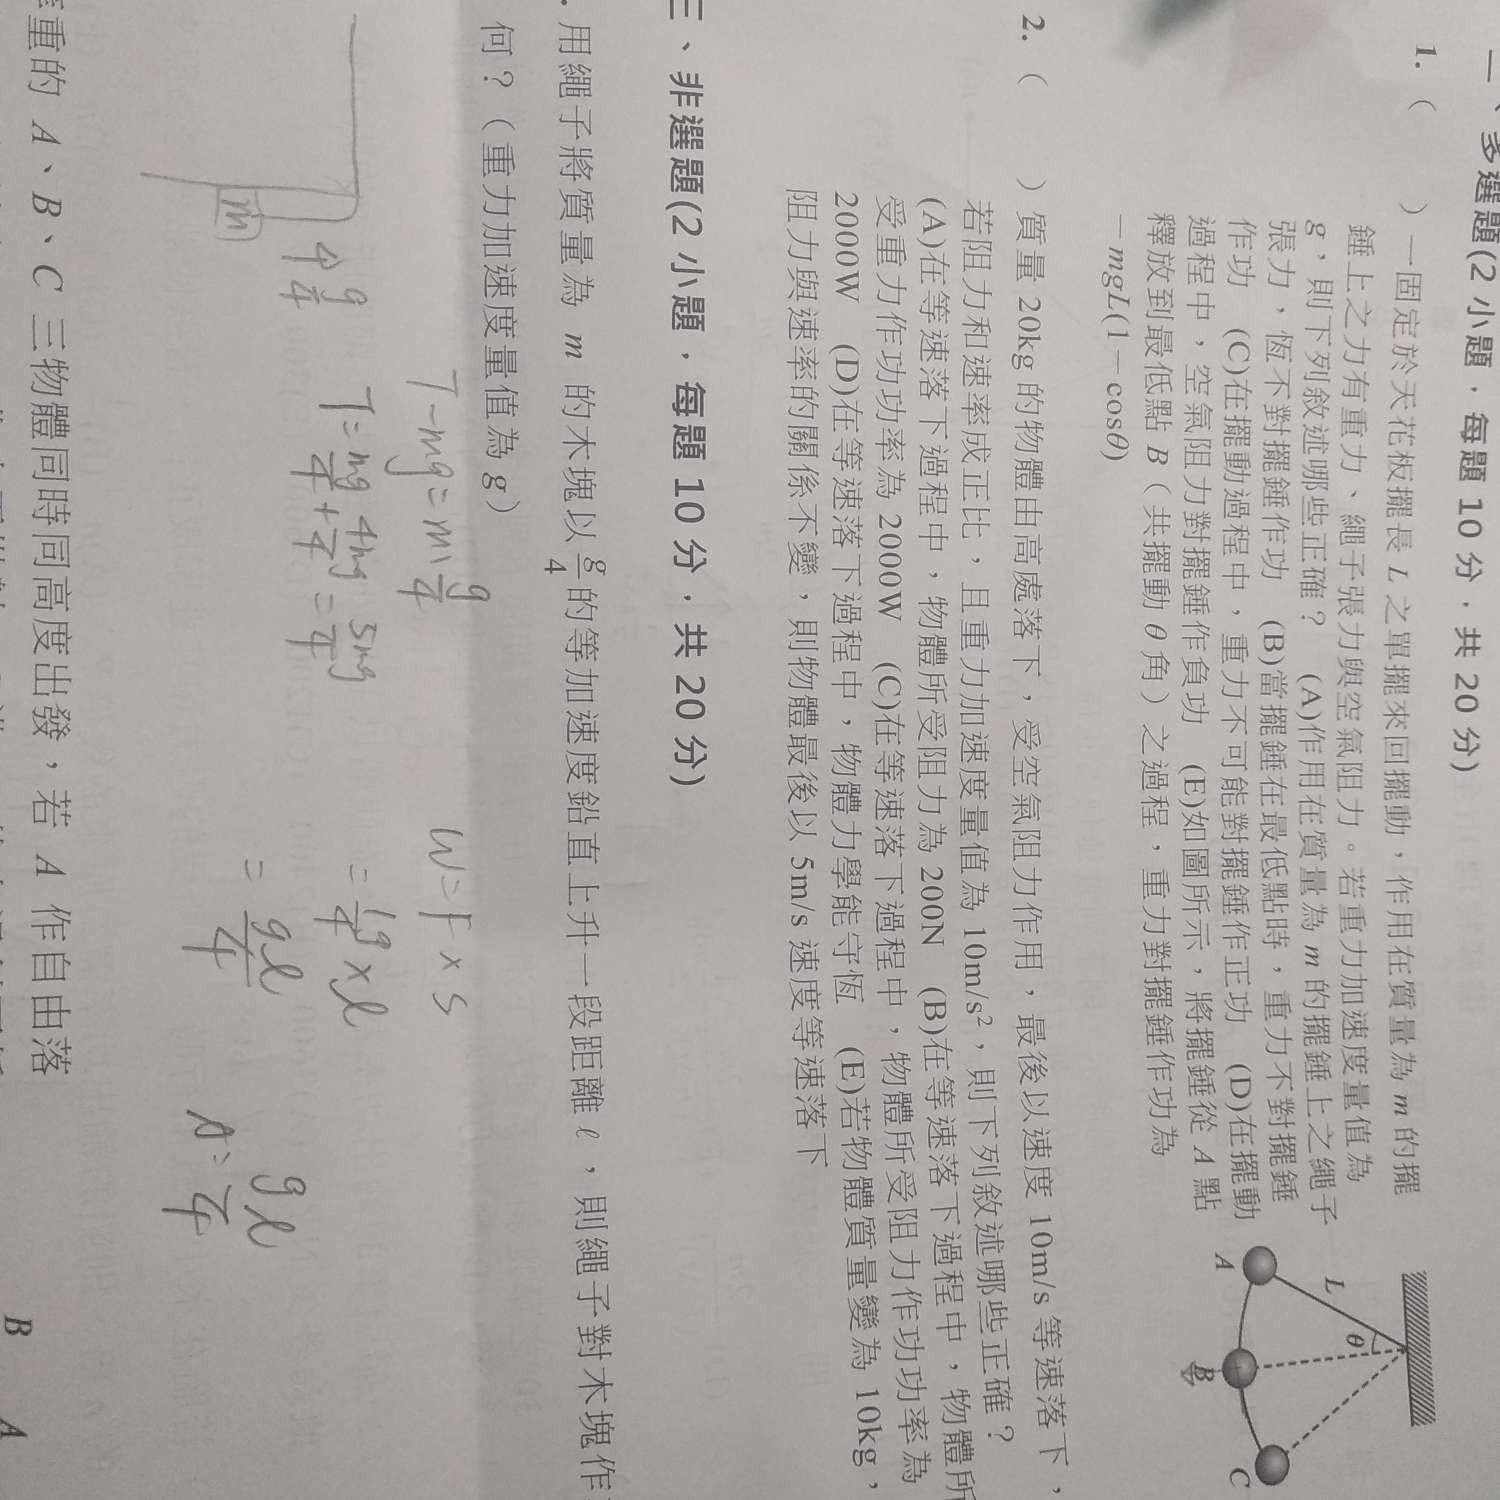 二、多選題(2 小題，每題 10 分，共 20 分)
1. ( ) 一固定於天花板擺長 L 之單擺來回擺動，作用在質量為 m 的擺
錘上之力有重力、繩子張力與空氣阻力。若重力加速度量值為
g，則下列敘述哪些正確？ (A)作用在質量為 m 的擺錘上之繩子
張力，恆不對擺錘作功 (B)當擺錘在最低點時，重力不對擺錘
作功 (C)在擺動過程中，重力不可能對擺錘作正功 (D)在擺動
過程中，空氣阻力對擺錘作負功 (E)如圖所示，將擺錘從 A 點
釋放到最低點 B（共擺動 θ 角）之過程，重力對擺錘作功為
－mgL(1－cosθ)
L
θ
A
B
C
2. ( ) 質量 20kg 的物體由高處落下，受空氣阻力作用，最後以速度 10m/s 等速落下，
若阻力和速率成正比，且重力加速度量值為 10m/s²，則下列敘述哪些正確？
(A)在等速落下過程中，物體所受阻力為 200N (B)在等速落下過程中，物體所
受重力作功功率為 2000W (C)在等速落下過程中，物體所受阻力作功功率為
2000W (D)在等速落下過程中，物體力學能守恆 (E)若物體質量變為 10kg，
阻力與速率的關係不變，則物體最後以 5m/s 速度等速落下
三、非選題(2 小題，每題 10 分，共 20 分)
. 用繩子將質量為 m 的木塊以 g/4 的等加速度鉛直上升一段距離 ℓ，則繩子對木塊作
何？（重力加速度量值為 g）
T-mg=m g/4
T= mg/4 + 4mg/4 = 5mg/4
m
g/4
W=F×s
= 1/4 g×l
= gl/4
A: gl/4
重的 A、B、C 三物體同時同高度出發，若 A 作自由落
B
A